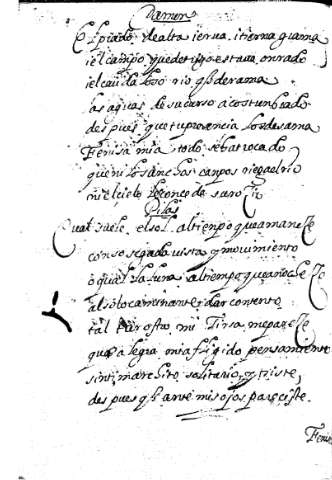 Damon
El prado de alta ierua, i tierna grama
i el campo que de trigo estaua onrado
i el caudaloso rio q̃ derrama
las aguas de su curso acostunbrado
despues que tu presencia los desama
Fenisa mia todo se ha trocado
que ni los anchos canpos riega el rio
ni el cielo
Cual suele el sol al tienpo que amaneçe
con sosegada vista y mouimiento
o qual la luna al tiempo que anocheçe
al solo caminante dar contento
tal tu rostro mi Tirsa me pareçe
que alegra mi afligido pensamiento
sintiendo solitario, y triste,
despues q̃ ante mis ojos pareçiste.
Fenis